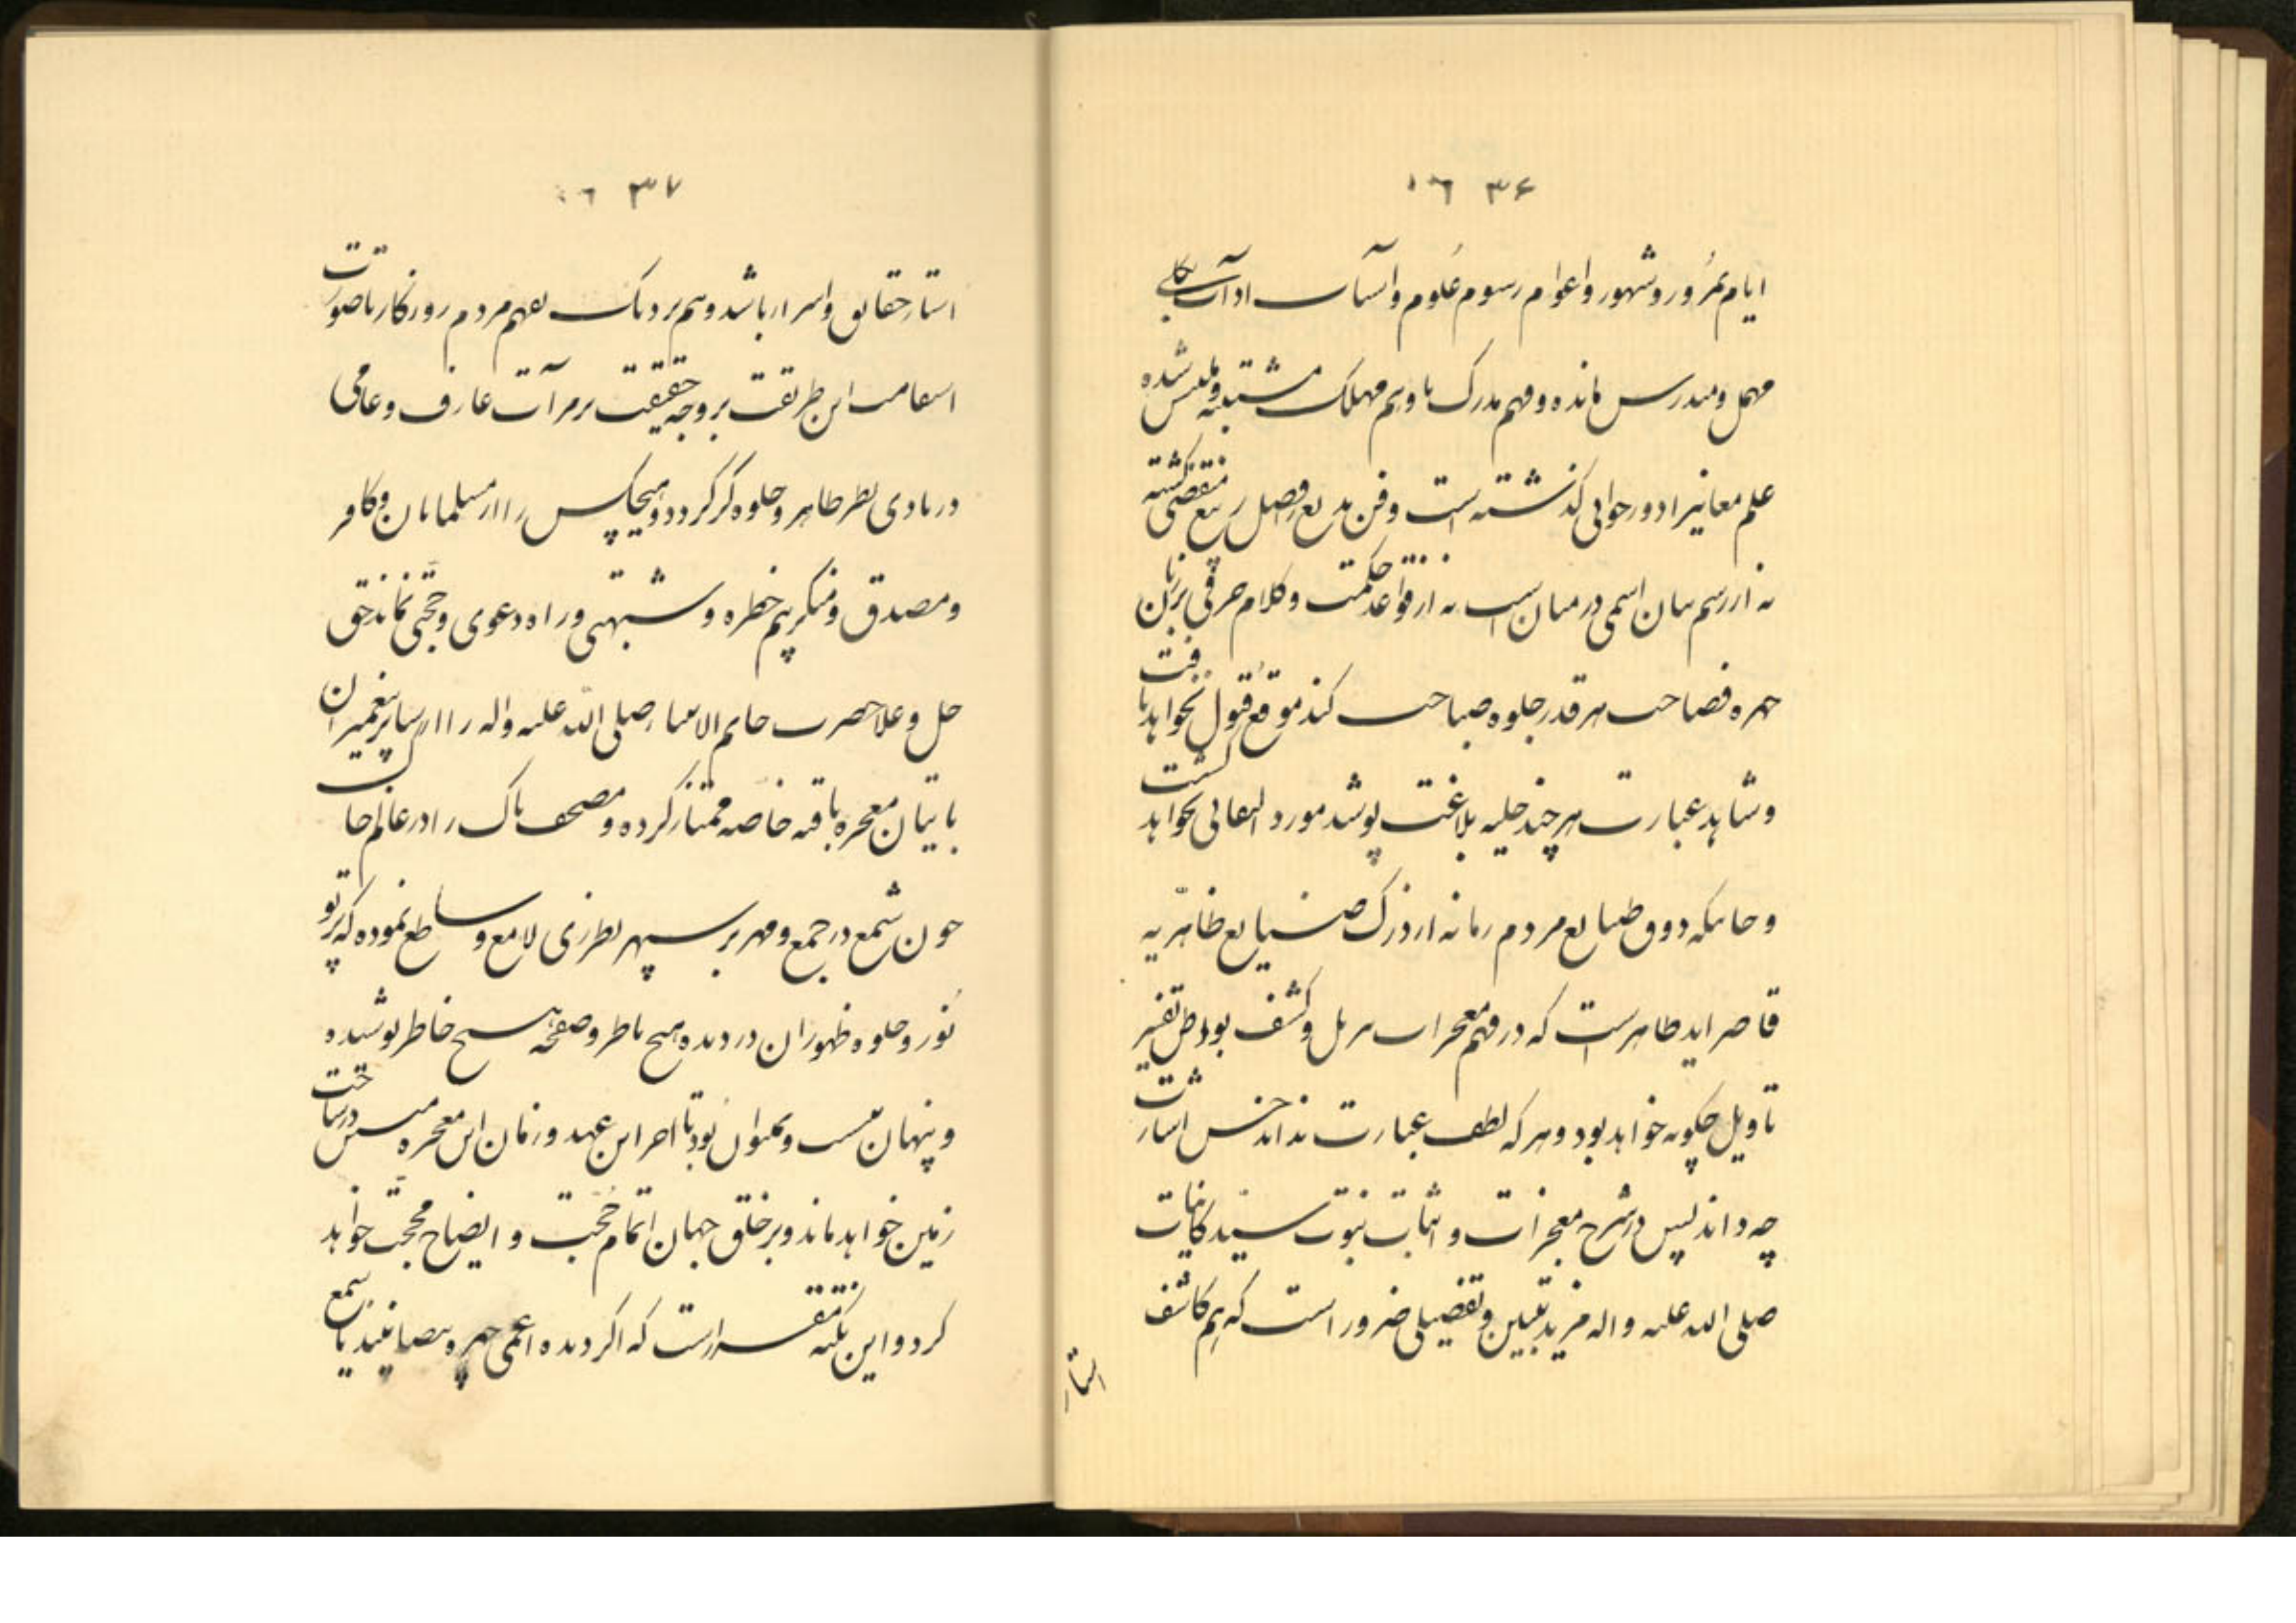 ۳۶
ایام بمرور و شهور و اعوام رسوم علوم و آسات اداب بکلی
مهمل و مندرس مانده و فهم مدرک با وهم مهلک مشتبه و ملتبس شده
علم معانیرا دور جوانی کذشته است و فن بدیع را فصل ربیع منقضی کشته
نه از رسم بیان اسمی در میان است نه از قواعد حکمت و کلام حرفی بر زبان
چهره فصاحت هر قدر جلوه صباحت کند موقع قبول نخواهد یافت
و شاهد عبارت هر چند حلیه بلاغت پوشد مورد التفاتی نخواهد کشت
و جائیکه ذوق طبایع مردم زمانه از درک صنایع ظاهریه
قاصر اید ظاهر است که در فهم معجزات تنزیل و کشف بواطن تفسیر
تاویل چکونه خواهد بود و هر که لطف عبارت نداند حسن اشارت
چه داند پس در شرح معجزات و اثبات نبوت سید کاینات
صلی الله علیه و اله مزید تبیین و تفصیلی ضرور است که هم کاشف
استار
۳۷
استار حقایق و اسرار باشد و هم نزدیک بفهم مردم روزکار تا صورت
استقامت این طریقت بر وجه حقیقت بر مرآت عارف و عامی
در بادی نظر ظاهر و جلوه کر کردد و هیچکس را از مسلمانان و کافر
و مصدق و منکر بیم خطره و شبهتی و راه دعوی و حجتی نماند حق
جل و علا حضرت خاتم الانبیا صلی الله علیه واله را از سایر پیغمبران
باتیان معجزه باقیه خاصه ممتاز کرده و مصحف پاک را در عالم خاک
چون شمع در جمع و مهر بر سپهر بطرزی لامع و ساطع نموده که پرتو
نور و جلوه ظهور ان در دیده هیچ ناظر و صفحه هیچ خاطر پوشیده
و پنهان نیست و نمیتوان بود تا اخر این عهد و زمان این معجزه مبین در ساحت
زمین خواهد ماند و بر خلق جهان اتمام حجت و ایضاح محجت خواهد
کرد و این نکته مقرر است که اکر دیده اعمی چهره بیضا نبیند یا سمع